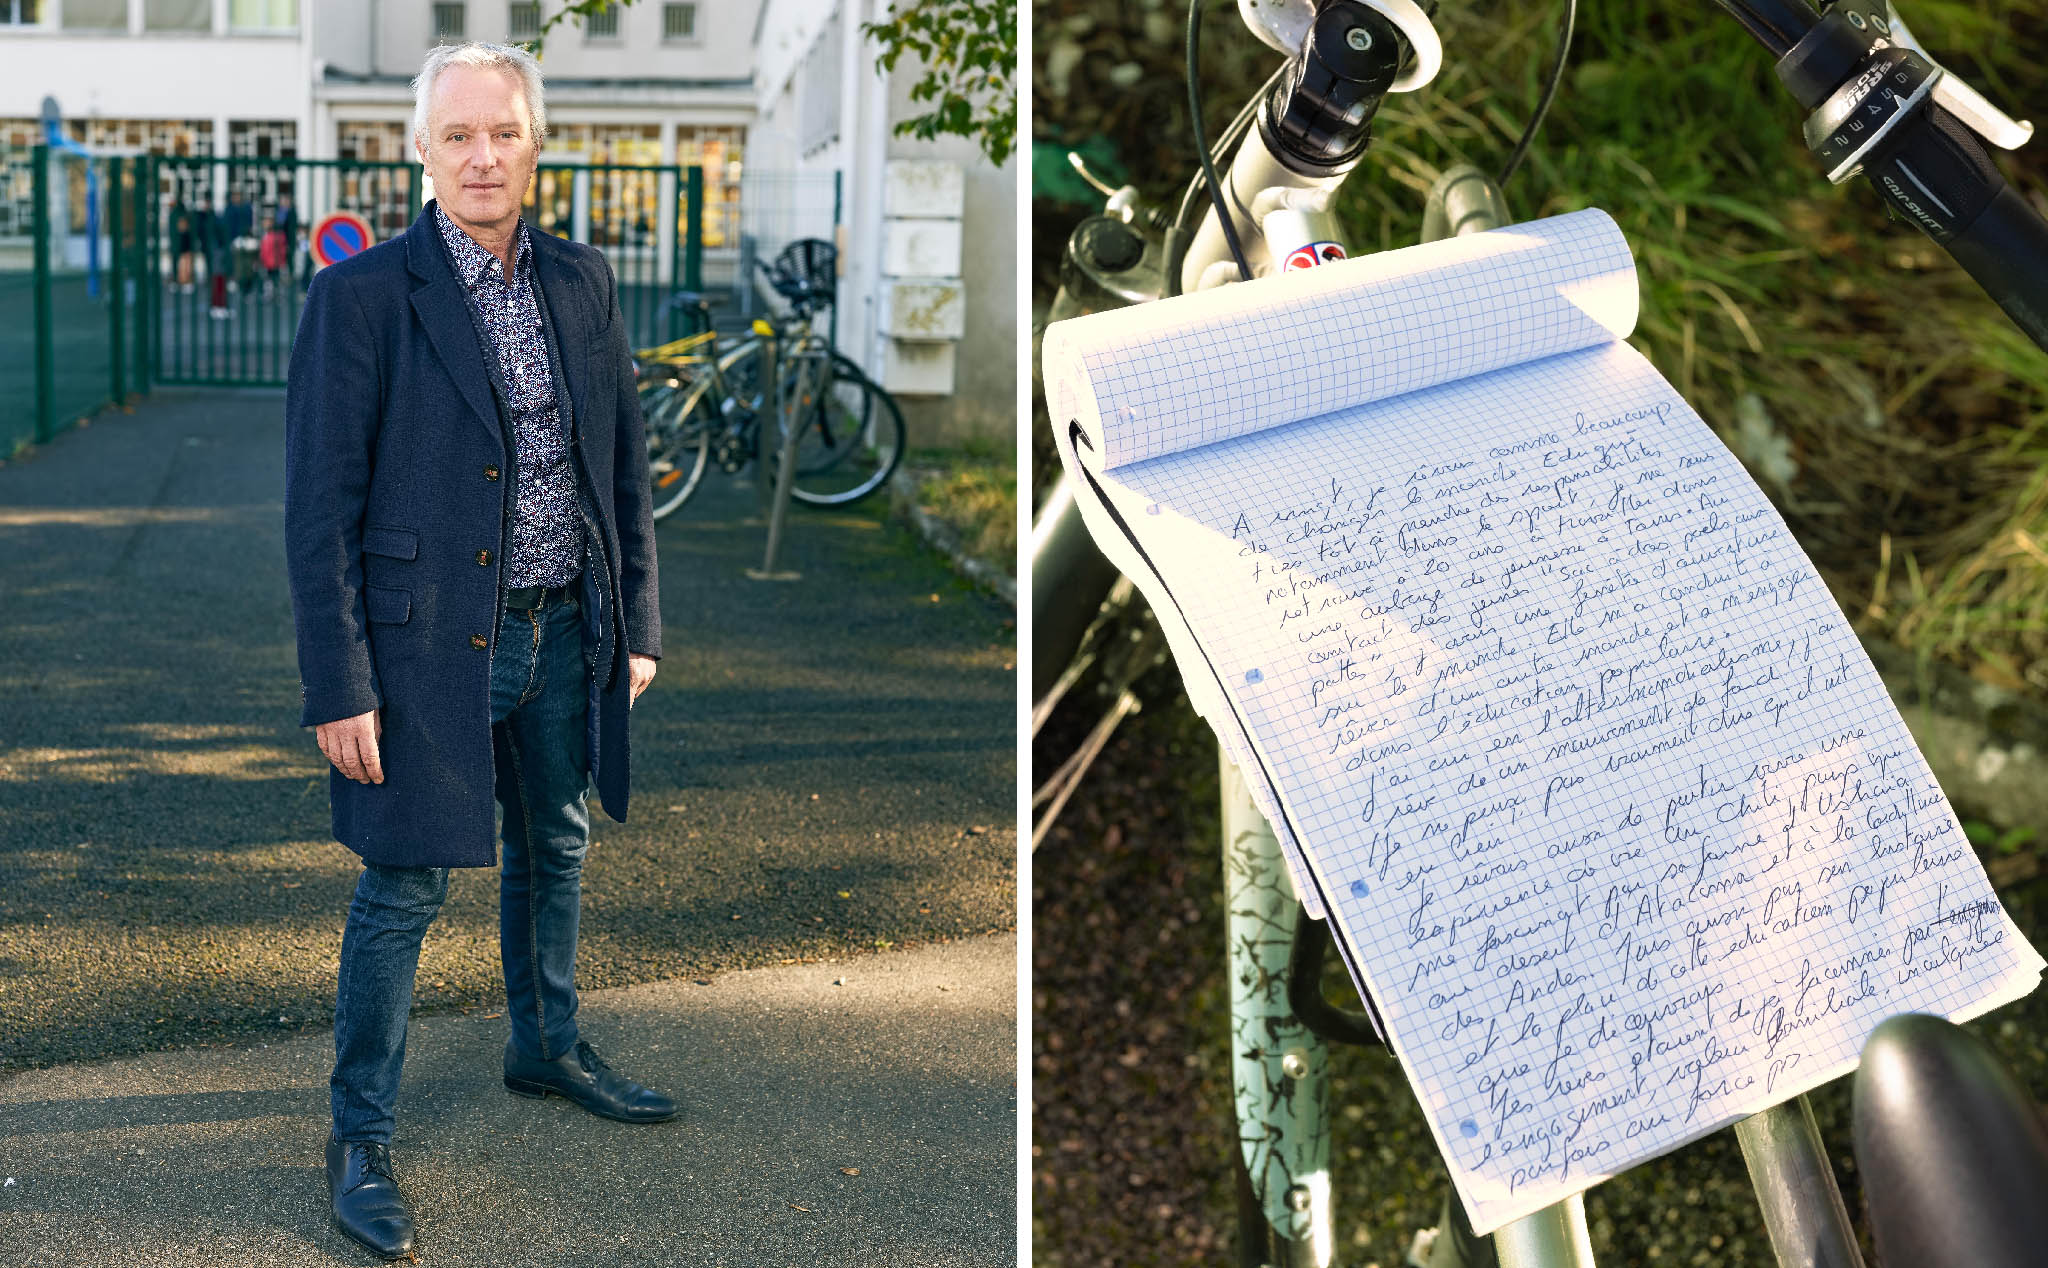 A vingt, je rêvais comme beaucoup
de changer le monde. Eduqué
très tôt à prendre des responsabilités
notamment dans le sport, je me suis
retrouvé à 20 ans à travailler dans
une auberge de jeunesse à Tours. Au
contact des jeunes "sac à dos poels aux
pattes", j'avais une fenêtre d'ouverture
sur le monde. Elle m'a conduit à
rêver d'un autre monde et à m'engager
dans l'éducation populaire.
J'ai cru, en l'altermondialisme, j'ai
rêvé de un mouvement de fond.
(Je ne peux pas vraiment dire qu'il ait
eu lieu).
Je rêvais aussi de partir vivre une
expérience de vie au Chili, pays qui
me fascinait par sa forme d'Ushuaia
au désert d'Atacama et à la Cordillère
des Andes. Mais aussi par son histoire
et la place de cette éducation populaire
que je découvrais.
Mes rêves étaient déjà façonnés par
l'engagement, valeur familiale, inculquée
parfois au forceps.
SRAM
GRIPSHIFT
1 2 3 4 5